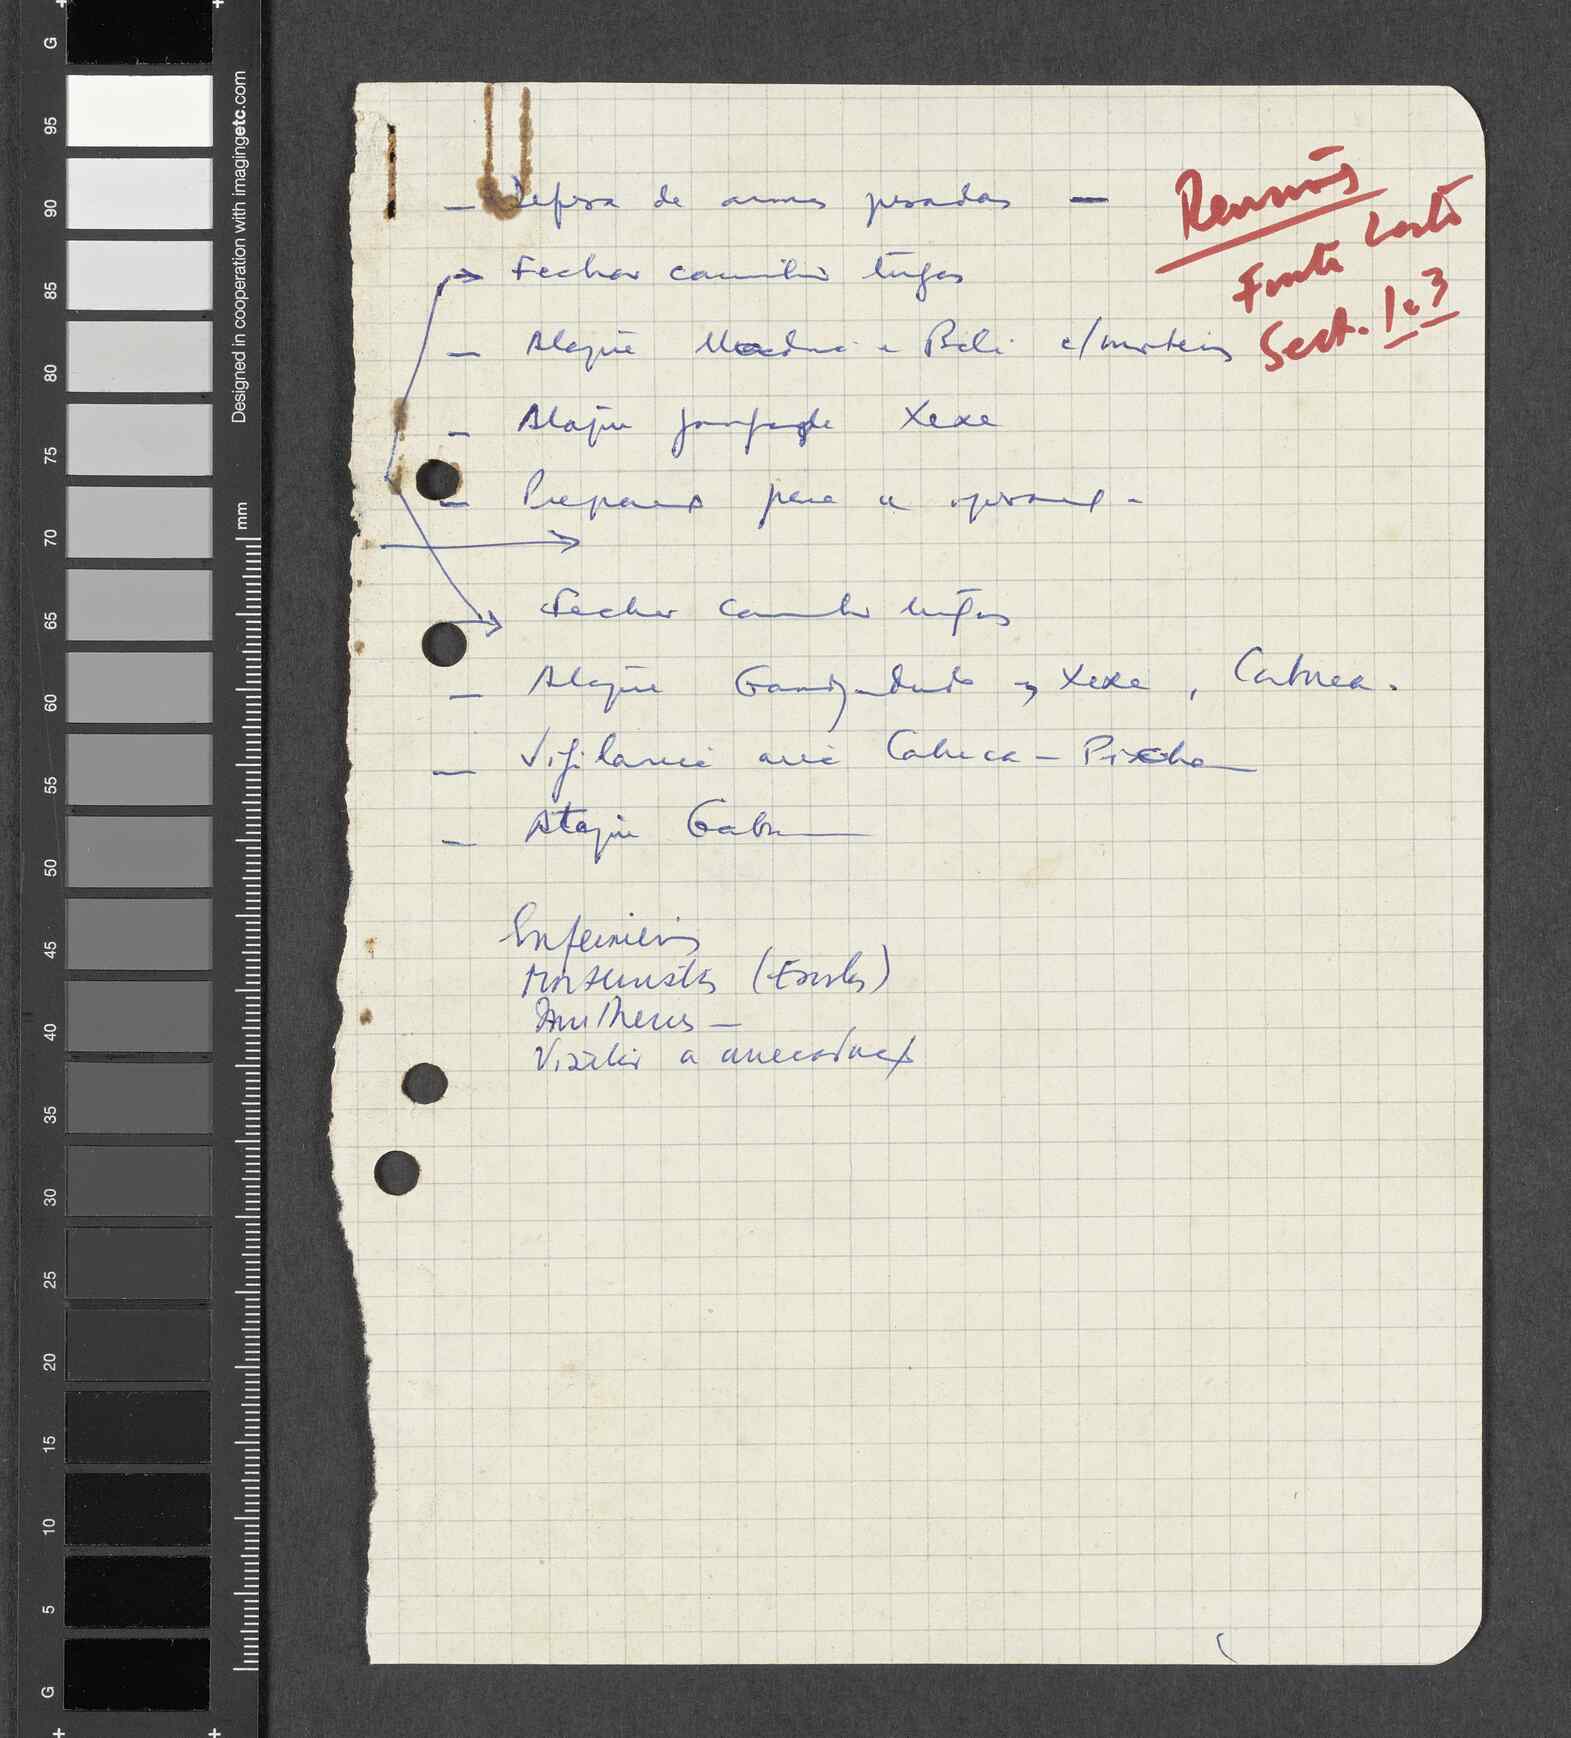 - Defesa de armas pesadas -
Reunião
Frente Leste
Sect. 1 e 3
Fechar caminho tugas
- Ataque Madina e Béli c/ morteiros
- Ataque Xexe
- Preparar para a
Fechar caminho tugas
- Ataque Xexe, Cabuca.
- Vigilância Cabuca - Pixe
- Ataque Gabu
Enfermeiros
(Escolas)
Mulheres -
Visitar a
G
95
90
85
80
75
70
65
60
55
50
45
40
35
30
25
20
15
10
5
G
mm
Designed in cooperation with imagingetc.com